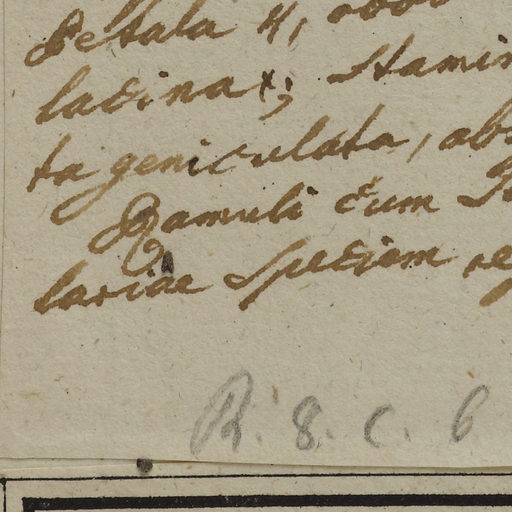 Petala 4, obov
lacinax; stamin
ta geniculata, abs
Ramuli cum
lariae speciem re
R. 8. c. 6